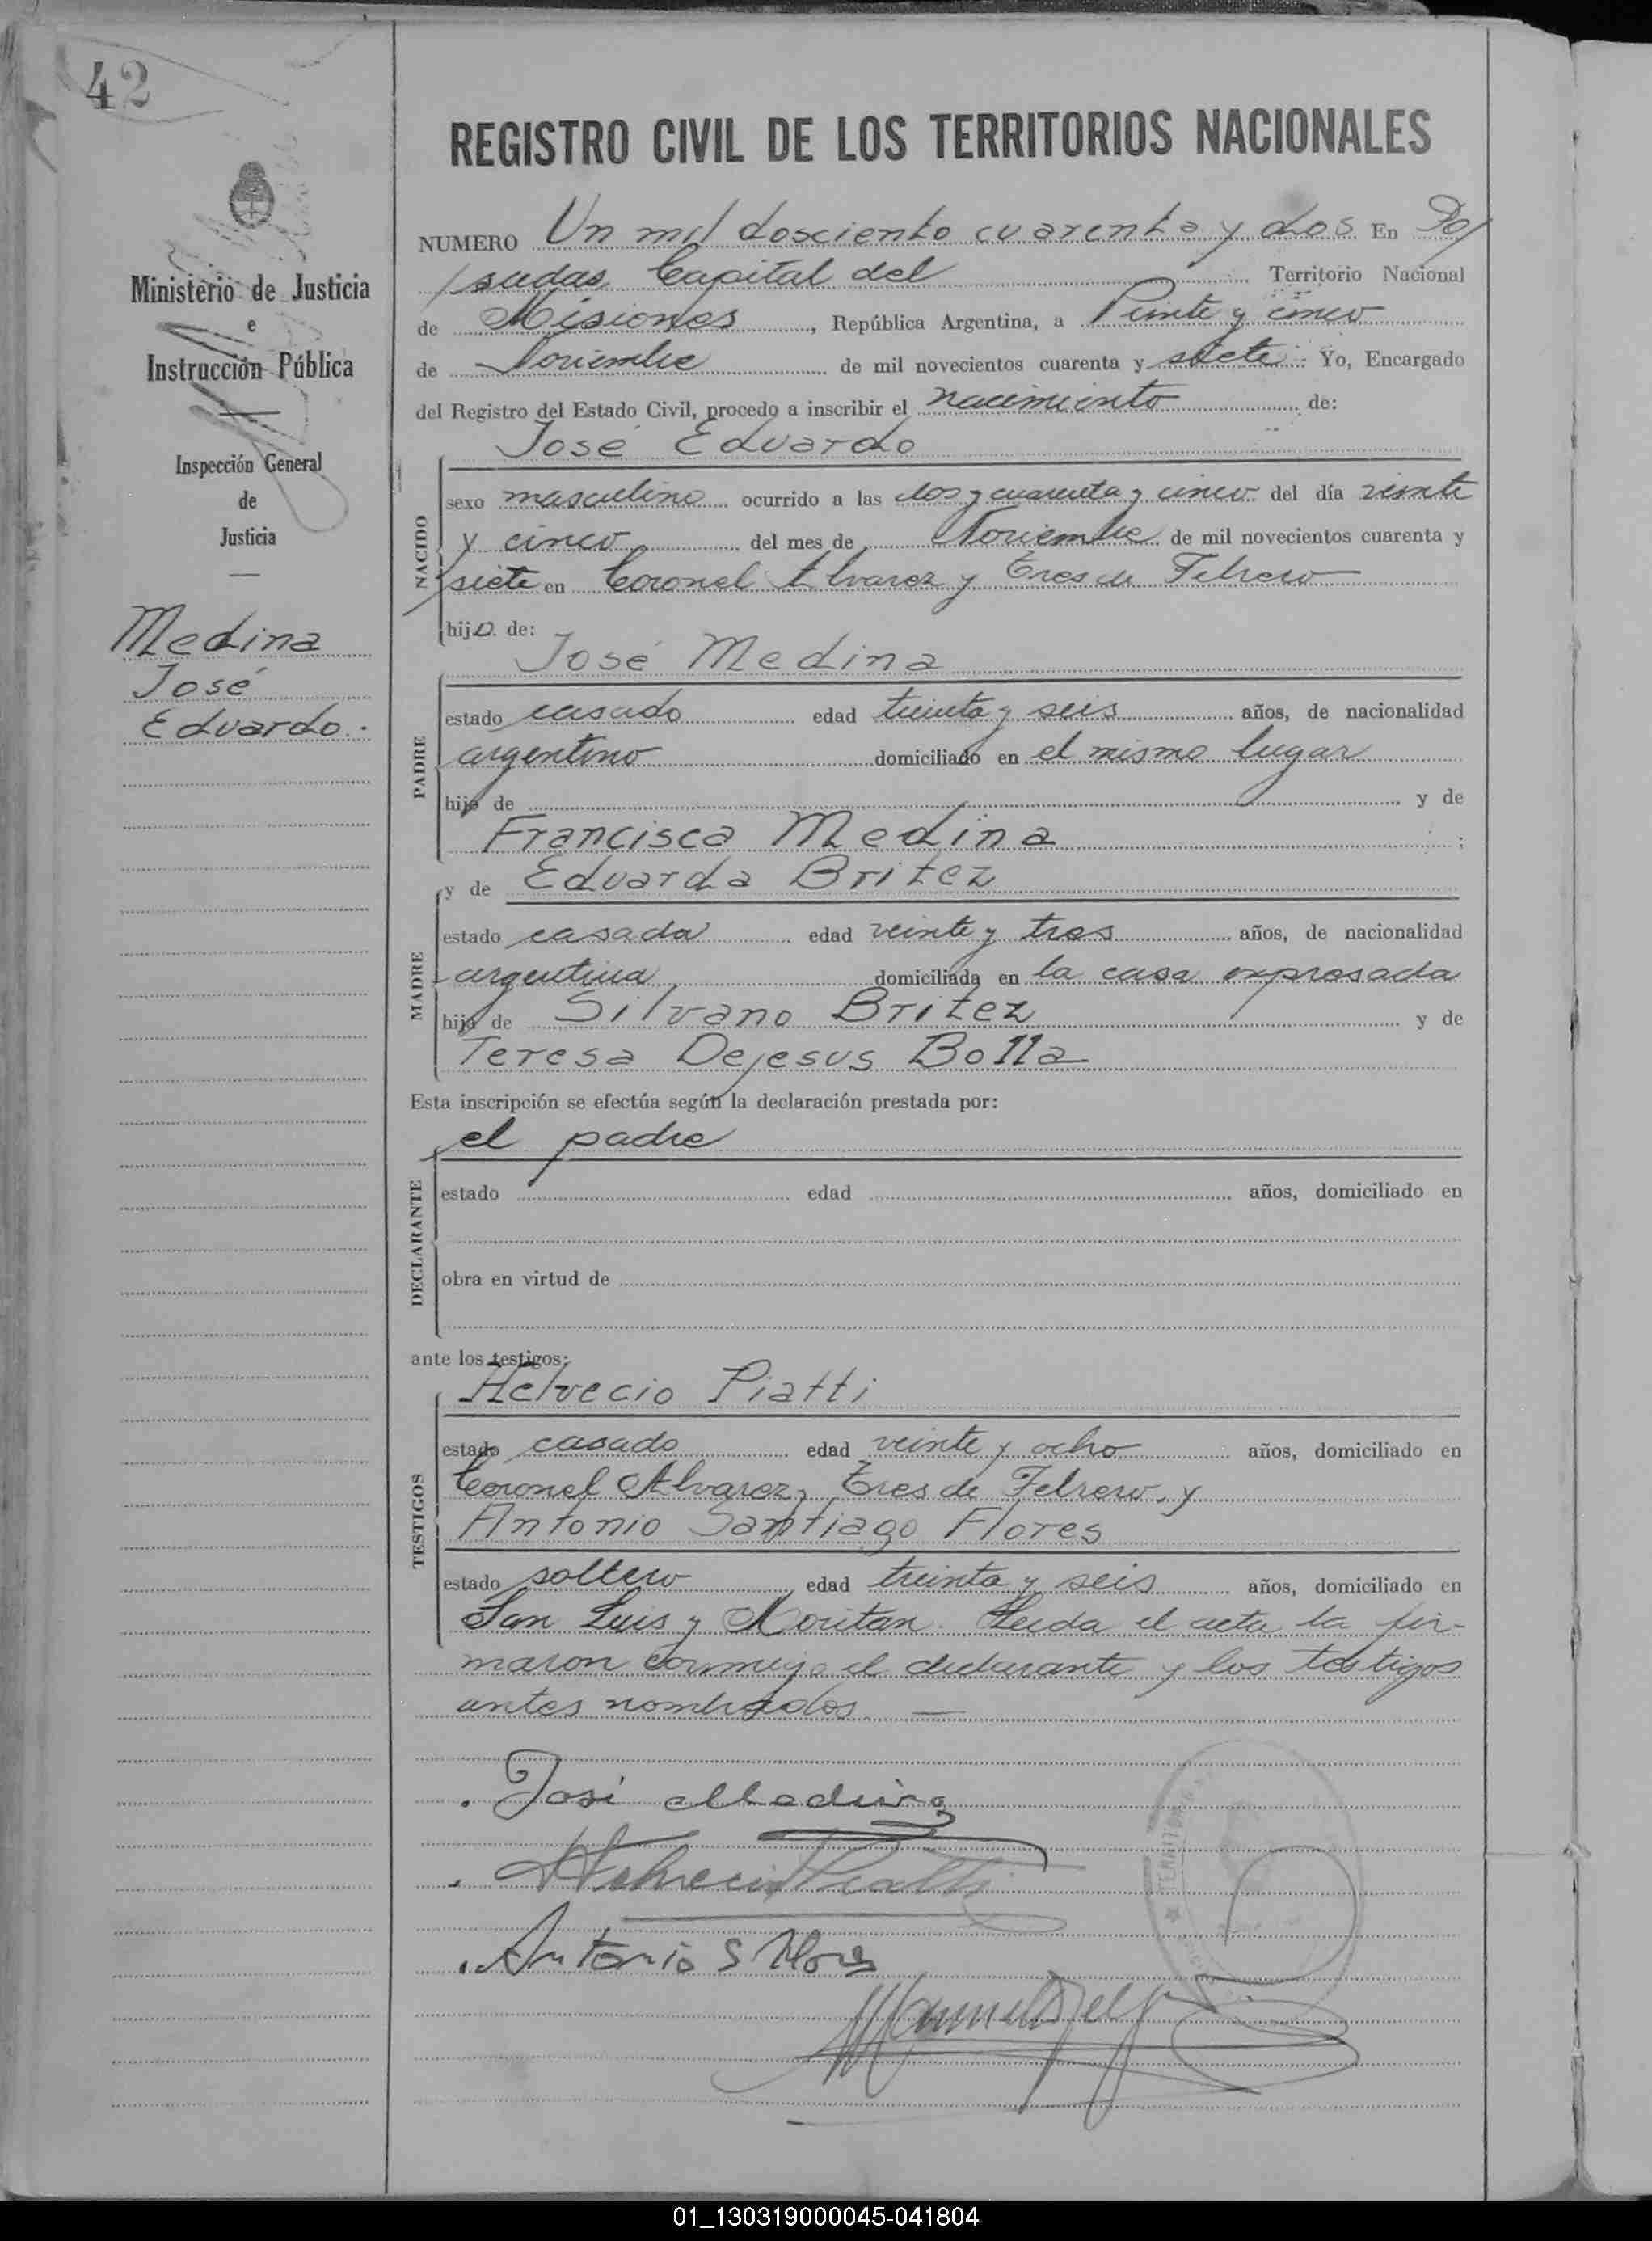 42
REGISTRO CIVIL DE LOS TERRITORIOS NACIONALES
Ministerio de Justicia
e
Instrucción Pública
Inspección General
de
Justicia
Medina
José
Eduardo.
NUMERO Un mil dosciento cuarenta y dos En Po/
/sadas Capital del Territorio Nacional
de Misiones, República Argentina, a Veinte y cinco
de Noviembre de mil novecientos cuarenta y siete. Yo, Encargado
del Registro del Estado Civil, procedo a inscribir el nacimiento de:
José Eduardo
NACIDO
sexo masculino ocurrido a las dos y cuarenta y cinco del día veinte
y cinco del mes de Noviembre de mil novecientos cuarenta y
siete en Coronel Alvarez y Tres de Febrero
hijo. de:
José Medina
PADRE
estado casado edad treinta y seis años, de nacionalidad
argentino domiciliado en el mismo lugar
hijo de y de
Francisca Medina ;
y de Eduarda Britez
MADRE
estado casada edad veinte y tres años, de nacionalidad
argentina domiciliada en la casa expresada
hija de Silvano Britez y de
Teresa Dejesus Bolla
Esta inscripción se efectúa según la declaración prestada por:
el padre
DECLARANTE
estado edad años, domiciliado en
obra en virtud de
ante los testigos:
Helvecio Piatti
TESTIGOS
estado casado edad veinte y ocho años, domiciliado en
Coronel Alvarez y Tres de Febrero, y
Antonio Santiago Flores
estado soltero edad treinta y seis años, domiciliado en
San Luis y Moritan. Leida el acta la fir-
maron conmigo el declarante y los testigos
antes nombrados. —
José Medina
Helvecio Piatti
Antonio S Flores
01_130319000045-041804